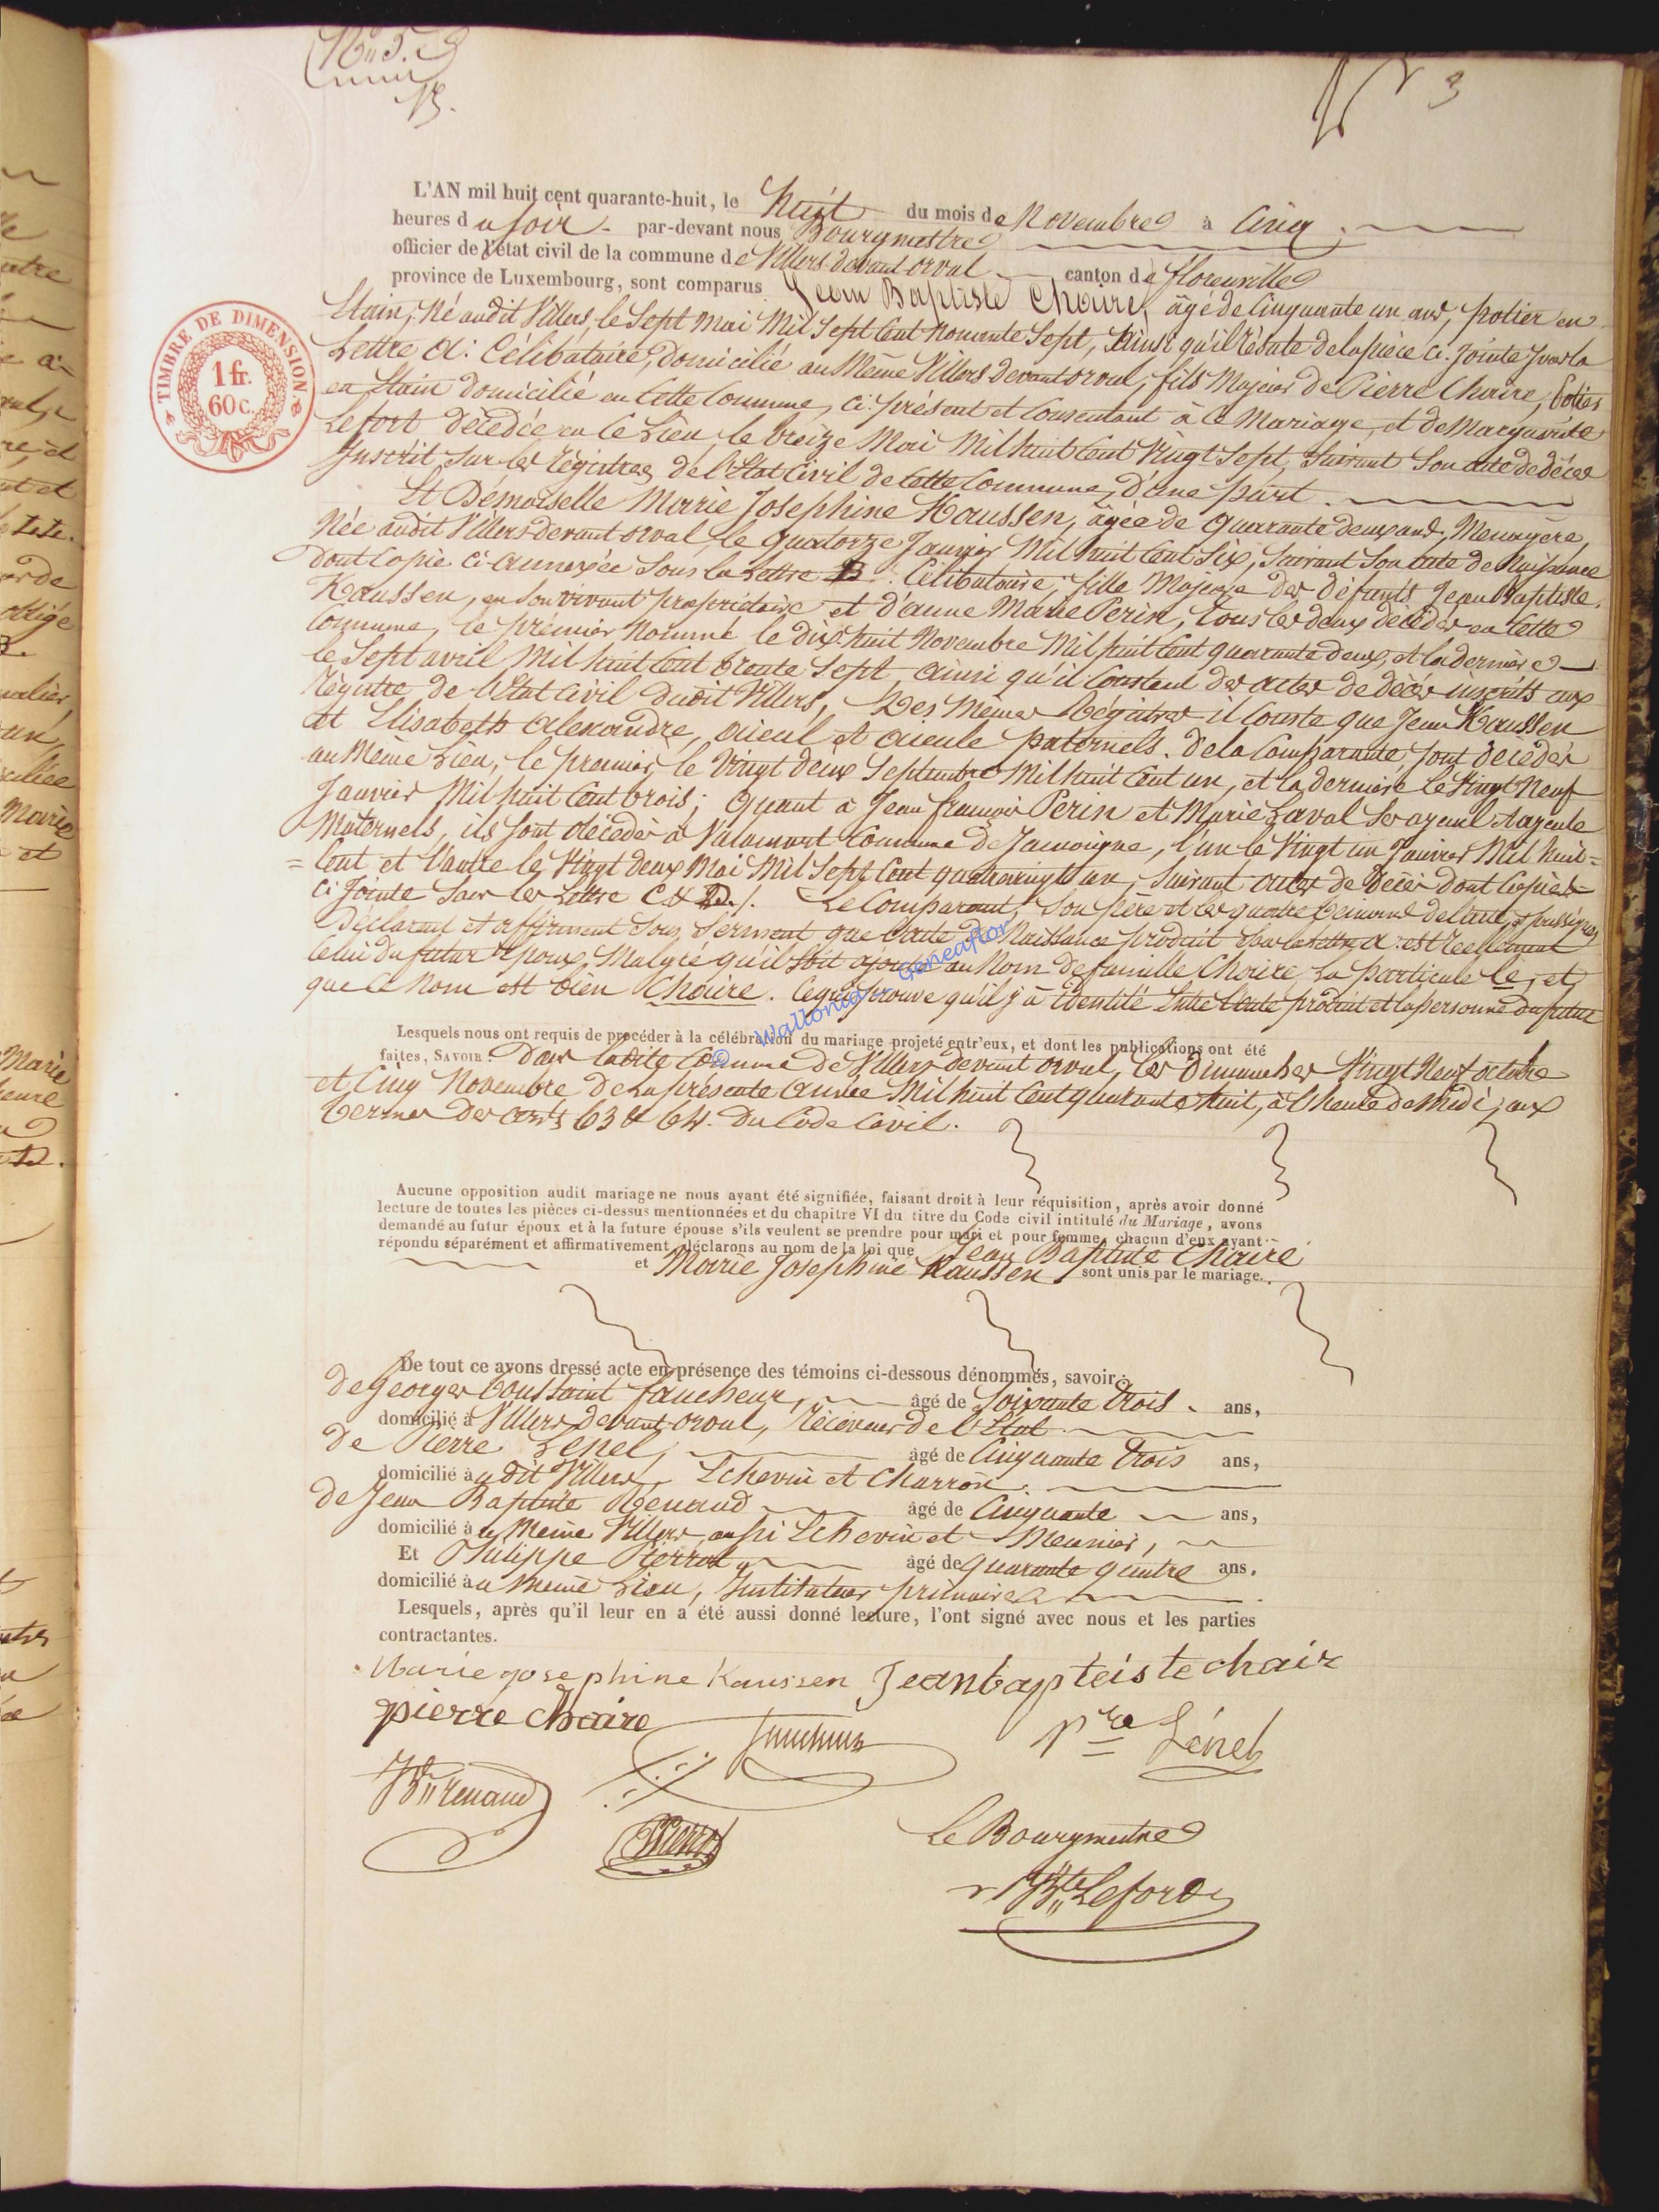 N° 3
L'AN mil huit cent quarante-huit, le huit du mois de Novembre à Cinq
heures du soir par-devant nous Bourgmestre
officier de l'état civil de la commune de Villers devant orval canton de florenville
province de Luxembourg, sont comparus Jean Baptiste Choire, âgé de Cinquante un ans, potier en
Etain, Né audit Villers, le Sept Mai Mil Sept Cent Nonante Sept, Ainsi qu'il résulte de la pièce ci-jointe sous la
Lettre A: Célibataire, domicilié au Même Villers devant orval, fils Majeur de Pierre Choire, Potier
en Etain domicilié en Cette Commune, ci-présent et Consentant à Ce Mariage, et de Marguerite
Lefort décédée en Ce Lieu, le treize Mai Mil huit Cent Vingt Sept, Suivant Son acte de décès
Inscrit Sur les Régistres de l'Etat Civil de Cette Commune, d'une part.
Et Démoiselle Marie Josephine Kaussen, âgée de quarante deux ans, Menagère,
Née audit Villers devant orval, le quatorze Janvier Mil huit Cent Six, Suivant Son acte de Naissance
dont Copie Ci-annexée Sous la Lettre B: Célibataire, fille Majeure des défunts Jean Baptiste
Kaussen, en Son vivant propriétaire et d'anne Marie Perin, tous les deux décédés en Cette
Commune, le premier Nommé le dix huit Novembre Mil huit Cent quarante deux, et la dernière
le Sept avril Mil huit Cent trente Sept, ainsi qu'il Constent des actes de décès inscrits aux
Régistre de l'Etat Civil dudit Villers, Des Mêmes Régistres il Conste que Jean Kaussen
et Elisabeth Alexandre, aieul et aieule paternels de la Comparante, Sont décédés
au Même Lieu, le premier, le Vingt deux Septembre Mil huit Cent un, et la dernière le Vingt Neuf
Janvier Mil huit Cent trois; Quant a Jean françois Perin et Marie Laval Ses ayeul et ayeule
Maternels, ils Sont décédés à Valansart Commune de Jamoigne, l'un le Vingt un Janvier Mil huit=
=Cent et l'autre le Vingt deux Mai Mil Sept Cent quatrevingt un, Suivant actes de Décès dont Copies
Ci Jointe Sous les Lettre C & D./. Le Comparant, Son père et les quatre témoins de l'acte
Déclarent et affirment Sous Serment que l'acte de Naissance produit Sous la lettre A est réellement
Celui du futur époux, Malgré qu'il Soit ajouté au Nom de famille Choire, la particule le, et
que Ce Nom est bien Choire. Ce qui prouve qu'il y à identité Entre l'acte produit et la personne du futur
Lesquels nous ont requis de procéder à la célébration du mariage projeté entr'eux, et dont les publications ont été
faites, SAVOIR Dans ladite Commune de Villers devant orval, les Dimanches Vingt Neuf octobre
et Cinq Novembre de la présente année Mil huit Cent quarante huit, à l'heure de Midi, aux
termes des arts 63 & 64 du Code Civil.
Aucune opposition audit mariage ne nous ayant été signifiée, faisant droit à leur réquisition, après avoir donné
lecture de toutes les pièces ci-dessus mentionnées et du chapitre VI du titre du Code civil intitulé du Mariage, avons
demandé au futur époux et à la future épouse s'ils veulent se prendre pour mari et pour femme, chacun d'eux ayant
répondu séparément et affirmativement, déclarons au nom de la loi que Jean Baptiste Choire
et Marie Josephine Kaussen sont unis par le mariage.
De tout ce avons dressé acte en présence des témoins ci-dessous dénommés, savoir:
de Georges toussaint faucheur, âgé de Soixante trois ans,
domicilié à Villers devant orval, Réceveur de l'Etat
de Pierre Lenel, âgé de Cinquante trois ans,
domicilié audit Villers, Echevin et Charron.
de Jean Baptiste Renaud âgé de Cinquante ans,
domicilié au Même Villers, aussi Echevin et Meunier,
Et Philippe Pierrot âgé de quarante quatre ans.
domicilié au même Lieu, Instituteur primaire
Lesquels, après qu'il leur en a été aussi donné lecture, l'ont signé avec nous et les parties
contractantes.
Marie josephine Kaussen Jean bapteiste choire
pierre choire
Pre Lénel
JBte renaud
Pierrot
Le Bourgmestre
JBte Lefort
TIMBRE DE DIMENSION
1 fr.
60 c.
Wallonia - Geneaflor